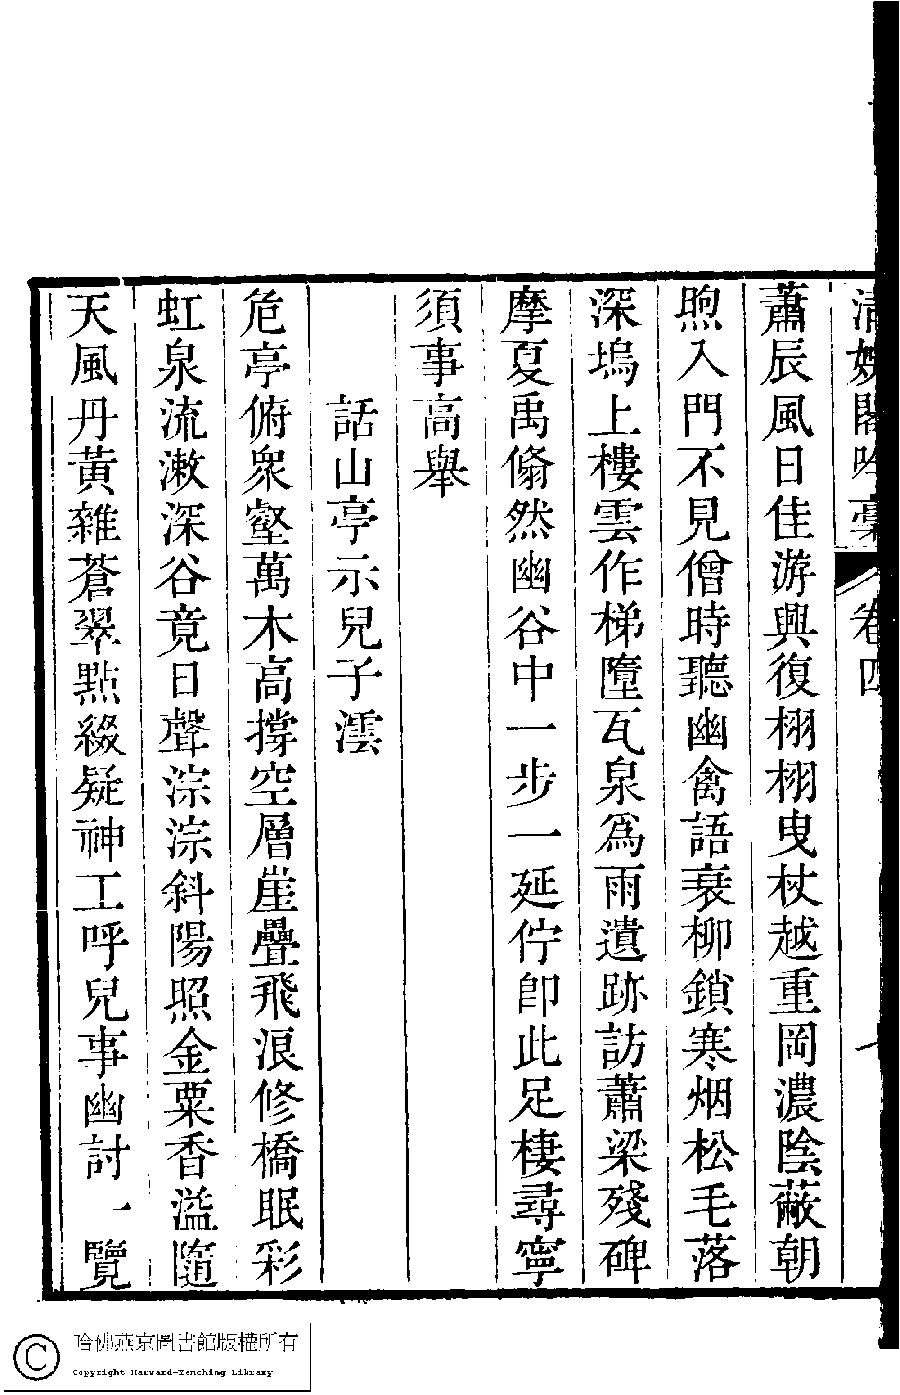 清娛閣吟藁 卷四
蕭辰風日佳游興復栩栩曳杖越重岡濃陰蔽朝
煦入門不見僧時聽幽禽語衰柳鎖寒烟松毛落
深塢上樓雲作梯墮瓦泉爲雨遺跡訪蕭梁殘碑
摩夏禹翛然幽谷中一步一延佇卽此足棲尋寧
須事高舉
話山亭示兒子澐
危亭俯衆壑萬木高撐空層崖疊飛浪修橋眠彩
虹泉流漱深谷竟日聲淙淙斜陽照金粟香溢隨
天風丹黃雜蒼翠點綴疑神工呼兒事幽討一覽
哈佛燕京圖書館版權所有
Copyright Harvard-Yenching Library